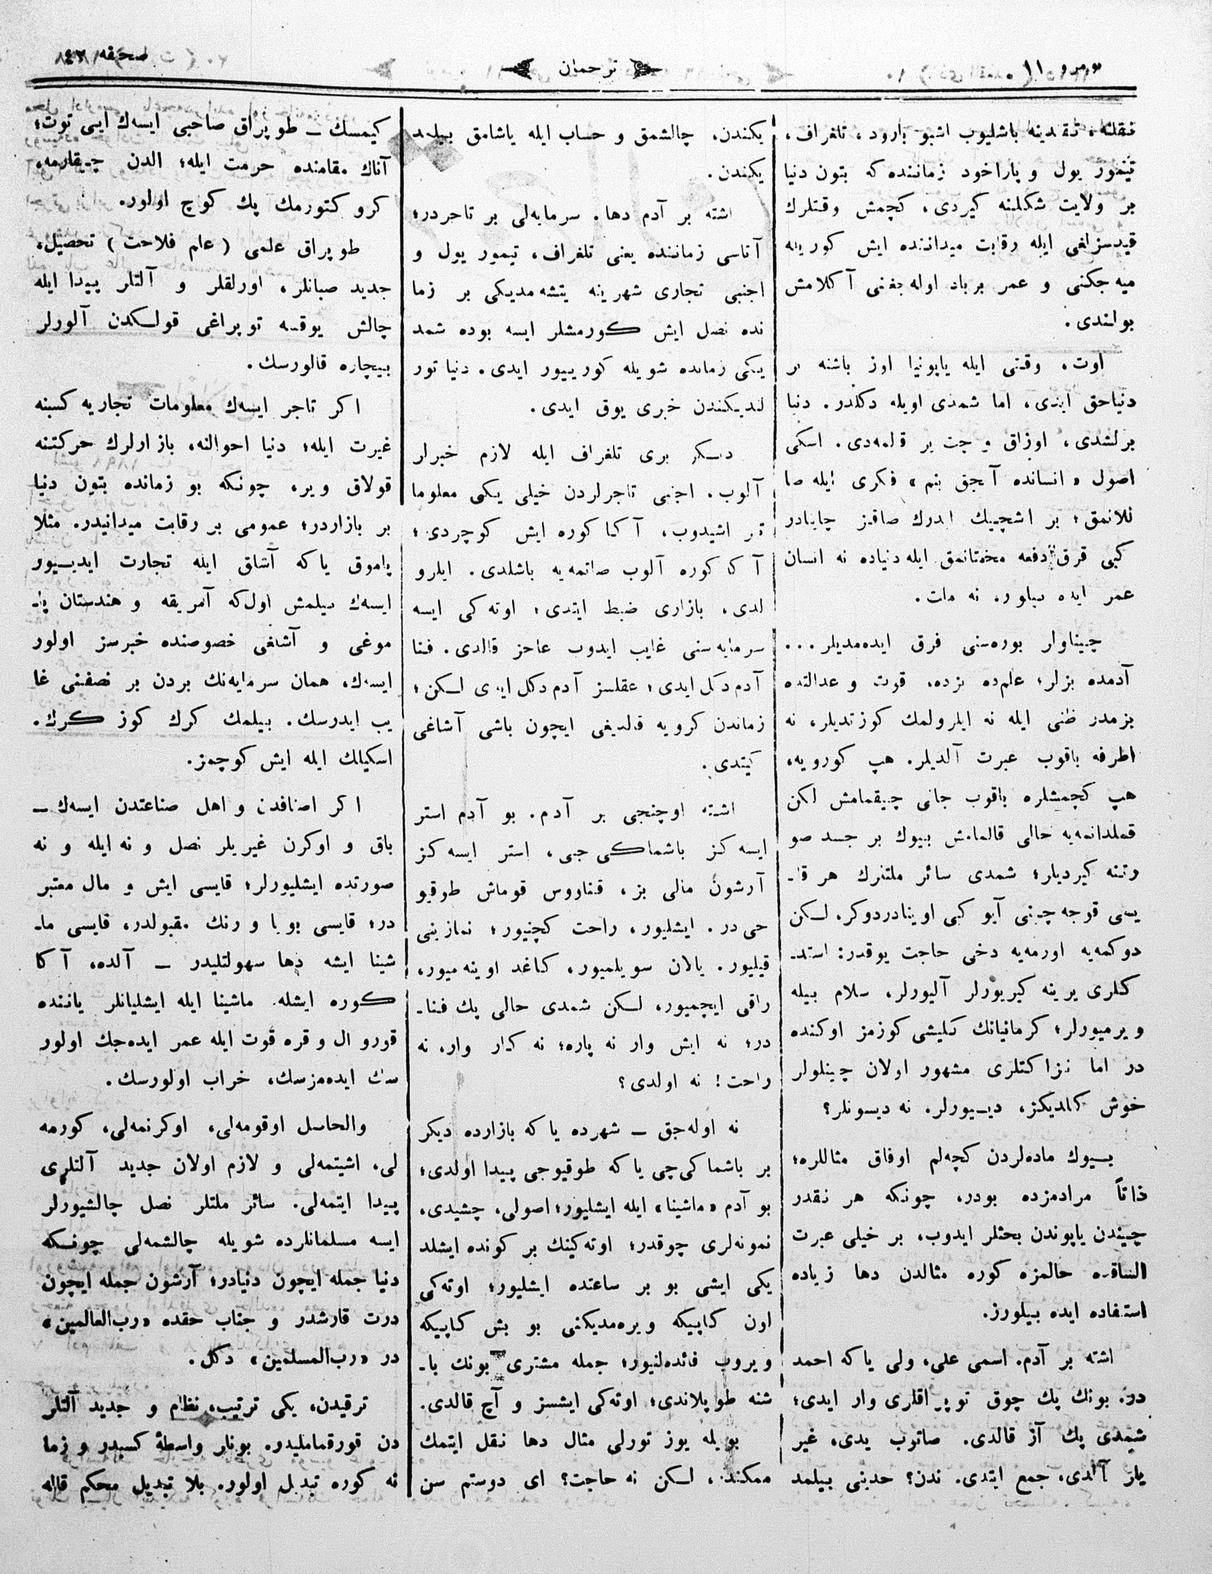 نومرو ۱۱
ترجمان
صحیفه ۴۲
نقلنه، نقدینه باشلیوب اشبو بارود، تلغراف،
تیمور یول و پاراخود زماننده که بتون دنیا
بر ولایت شکلنه کیردی، کچمش وقتلرك
قیدسزلغی ایله رقابت میداننده ایش کورینه
میه جکنی و عمر برباد اوله جغنی آکلامش
بولندی.
اوت، وقتی ایله یاپونیا اوز باشنه بر
دنیاجق ایدی، اما شمدی اویله دکلدر. دنیا
برلشدی، اوزاق و جت یر قلمه‌دی. اسکی
اصول «انسانده آنجق بنم» فکری ایله صا
للانمق؛ بر اشچیك ایدرك صاقیز چاینادر
کبی قرق دفعه مختانمق ایله دنیاده نه انسان
عمر ایده بیلور، نه ملت.
چیناولر بوره‌سنی فرق ایده‌مدیلر...
آدمده بزلر؛ علمده بزده، قوت و عدالتده
بزمدر ظنی ایله نه ایلرولمك کوزتدیلر، نه
اطرفه باقوب عبرت آلدیلر. هپ کورویه،
هپ کچمشلره باقوب جانی چیقمامش لکن
قملدانمه‌یه حالی قالمامش بیوك بر جسد صو
رتنه کیردیلر؛ شمدی سائر ملتنرك هر قا۔
یسی قوجه چینی آیو کبی اوینادردوکر، لکن
دوکمه‌یه اورمه‌یه دخی حاجت یوقدر: استد۔
کلری یرینه کیریورلر آلیورلر، سلام بیله
ویرمیورلر؛ کرمانیانك کلیشی کوزمز اوکنده
در اما نزاکتلری مشهور اولان چینلولر
خوش کلدیکز، دیـیورلر. نه دیسونلر؟
بـیوك ماده‌لردن کچه‌لم اوفاق مثاللره؛
ذاتاً مرادمزده بودر، چونکه هر نقدر
چیندن یاپوندن بحثلر ایدوب، بر خیلی عبرت
النساقده حالمزه کوره مثالدن دها زیاده
استفاده ایده بیلورز.
اشته بر آدم. اسمی علی، ولی یاکه احمد
در. بونك پك چوق توپراقلری وار ایدی؛
شمدی پك آز قالدی. صاتوب یدی، غیر
یلر آلدی، جمع ایتدی. ندن؟ حدینی بیلمد
یکندن، چالشمق و حساب ایله یاشامق بیلمد
یکندن.
اشته بر آدم دها. سرمایه‌لی بر تاجردر؛
آتاسی زماننده یعنی تلغراف، تیمور یول و
اجنبی تجاری شهرینه یتشه‌مدیکی بر زما
نده نصل ایش کورمشلر ایسه بوده شمد
یکی زمانده شویله کورییور ایدی. دنیا تور
لندیکندن خبری یوق ایدی.
دیـکر بری تلغراف ایله لازم خبرلر
آلوب، اجنبی تاجرلردن خیلی یکی معلوما
تر اشیدوب، آکا کوره ایش کوچردی؛
آکا کوره آلوب صاتمه‌یه باشلدی. ایلرو
لدی، بازاری ضبط ایتدی؛ اوته‌کی ایسه
سرمایه‌سنی غایب ایدوب عاجز قالدی. فنا
آدم دکل ایدی؛ عقلسز آدم دکل ایدی لـکن؛
زماندن کرویه قالدیغی ایچون باشی آشاغی
کیتدی.
اشته اوچنجی بر آدم. بو آدم استر
ایسه کز باشماکـی جی، استر ایسه کز
آرشون مالی بز، قنا‌ووس قوماش طوقیو
جی در. ایشلیور، راحت کچنیور؛ نمازینی
قیلیور. یالان سویلمیور، کاغد اوینه‌میور،
راقی ایچمیور، لـکن شمدی حالی پك فنا۔
در؛ نه ایش وار نه پاره؛ نه کدار وار، نه
راحت! نه اولدی؟
نه اوله‌جق ــ شهرده یاکه بازارده دیکر
بر باشماکی‌چی یاکه طوقیوجی پیدا اولدی؛
بو آدم «ماشینا» ایله ایشلیور؛ اصولی، چشیدی،
نمونه‌لری چوقدر؛ اوته‌کینك بر کونده ایشلد
یکی ایشی بو بر ساعتده ایشلیور؛ اوته‌کی
اون کاپیکه ویره‌مدیکنی بو بش کاپیکه
ویروب فائده‌لنیور؛ جمله مشتری بونك با۔
شنه طوپلاندی؛ اوته‌کی ایشسز و آچ قالدی.
بویله یوز تورلی مثال دها نقل ایتمك
ممکند، لـکن نه حاجت؟ ای دوستم سن
کیمسك ــ طوپراق صاحبی ایسه‌ك ایی توت؛
آناك مقامنده حرمت ایله؛ الدن چیقارمه،
کرو کتورمك پك کوچ اولور.
طوپراق علمی (علم فلاحت) تحصیل،
جدید صبانلر، اورلقلر و آلتلر پیدا ایله
چالش یوقسه توپراغی قولـکدن آلورلر
بیچاره قالورسك.
اکر تاجر ایسه‌ك معلومات تجاریه کسبنه
غیرت ایله؛ دنیا احوالنه، بازارلرك حرکتنه
قولاق ویر، چونکه بو زمانده بتون دنیا
بر بازاردر؛ عمومی بر رقابت میدانیدر. مثلا
پاموق یاکه آشلق ایله تجارت ایدیـیور
ایسه‌ك بیلمش اول‌که آمریقه و هندستان پا۔
موغی و آشلغی خصوصنده خبرسز اولور
ایسه‌ك، همان سرمایه‌نك بردن بر نصفنی غا
یب ایدرسك. بیلمك کرك کوز کرك.
اسکیلك ایله ایش کوچمز.
اکر اصنافدن و اهل صناعتدن ایسه‌ك ــ
باق و اوکرن غیریلر نصل و نه ایله و نه
صورتده ایشلیورلر؛ قایسی ایش و مال معتبر
در؛ قایسی بویا و رنك مقبولدر، قایسی ما۔
شینا ایشه دها سهولتلیدر ــ آلده، آکا
کوره ایشله. ماشینا ایله ایشلیانلر یاننده
قورو ال و قره قوت ایله عمر ایده‌جك اولور
سك ایده‌مزسك، خراب اولورسك.
والحاسل اوقومه‌لی، اوکرنمه‌لی، کورمه
لی، اشیتمه‌لی و لازم اولان جدید آلتلری
پیدا ایتمه‌لی. سائر ملتلر نصل چالشیورلر
ایسه مسلمانلرده شویله چالشمه‌لی چونـکه
دنیا جمله ایچون دنیادر؛ آرشون جمله ایچون
درت قارشدر و جناب حقده «رب‌العالمین»
در «رب‌المسلمین» دکل.
ترقیدن، یکی ترتیب، نظام و جدید آلتلر
دن قورقماملیدر. بونلر واسطهٔ کسبدر و زما
نه کوره تبدیل اولور. بلا تبدیل محکم قاله